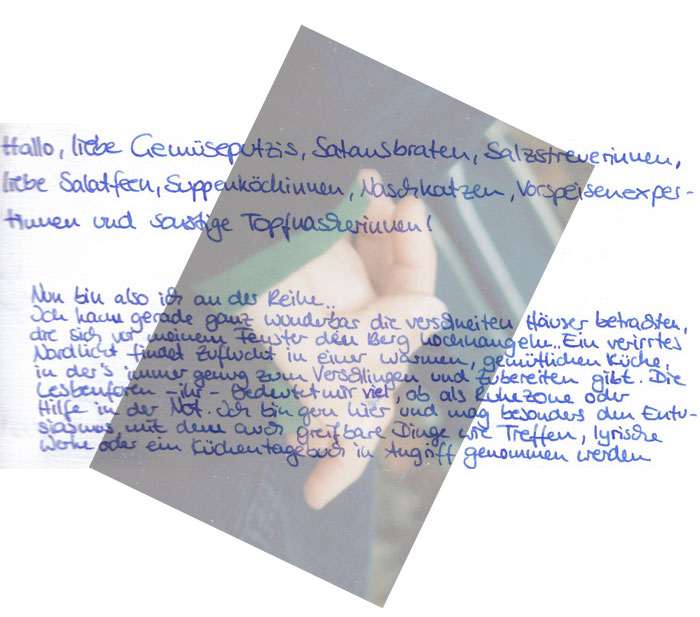 Hallo, liebe Gemüseputzis, Satansbraten, Salzstreuerinnen,
liebe Salatfeen, Suppenköchinnen, Naschkatzen, Vorspeisenexper-
tinnen und sonstige Topfnascherinnen!
Nun bin also ich an der Reihe..
Ich kann gerade ganz wunderbar die verschneiten Häuser betrachten,
die sich vor meinem Fenster den Berg hochhangeln.. Ein verirrtes
Nordlicht findet Zuflucht in einer warmen, gemütlichen Küche,
in der's immer genug zum Verschlingen und Zubereiten gibt. Die
Lesbenforen - ihr - bedeutet mir viel, ob als Ruhezone oder
Hilfe in der Not. Ich bin gern hier und mag besonders den Entu-
siasmus, mit dem auch greifbare Dinge wie Treffen, lyrische
Werke oder ein Küchentagebuch in Angriff genommen werden